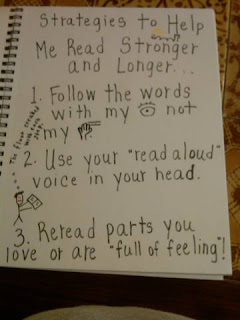 Strategies to Help
Me Read Stronger
and Longer...
1. Follow the words
with my not
my
2. Use your "read aloud"
voice in your head.
3. Reread parts you
love or are "full of feeling"!